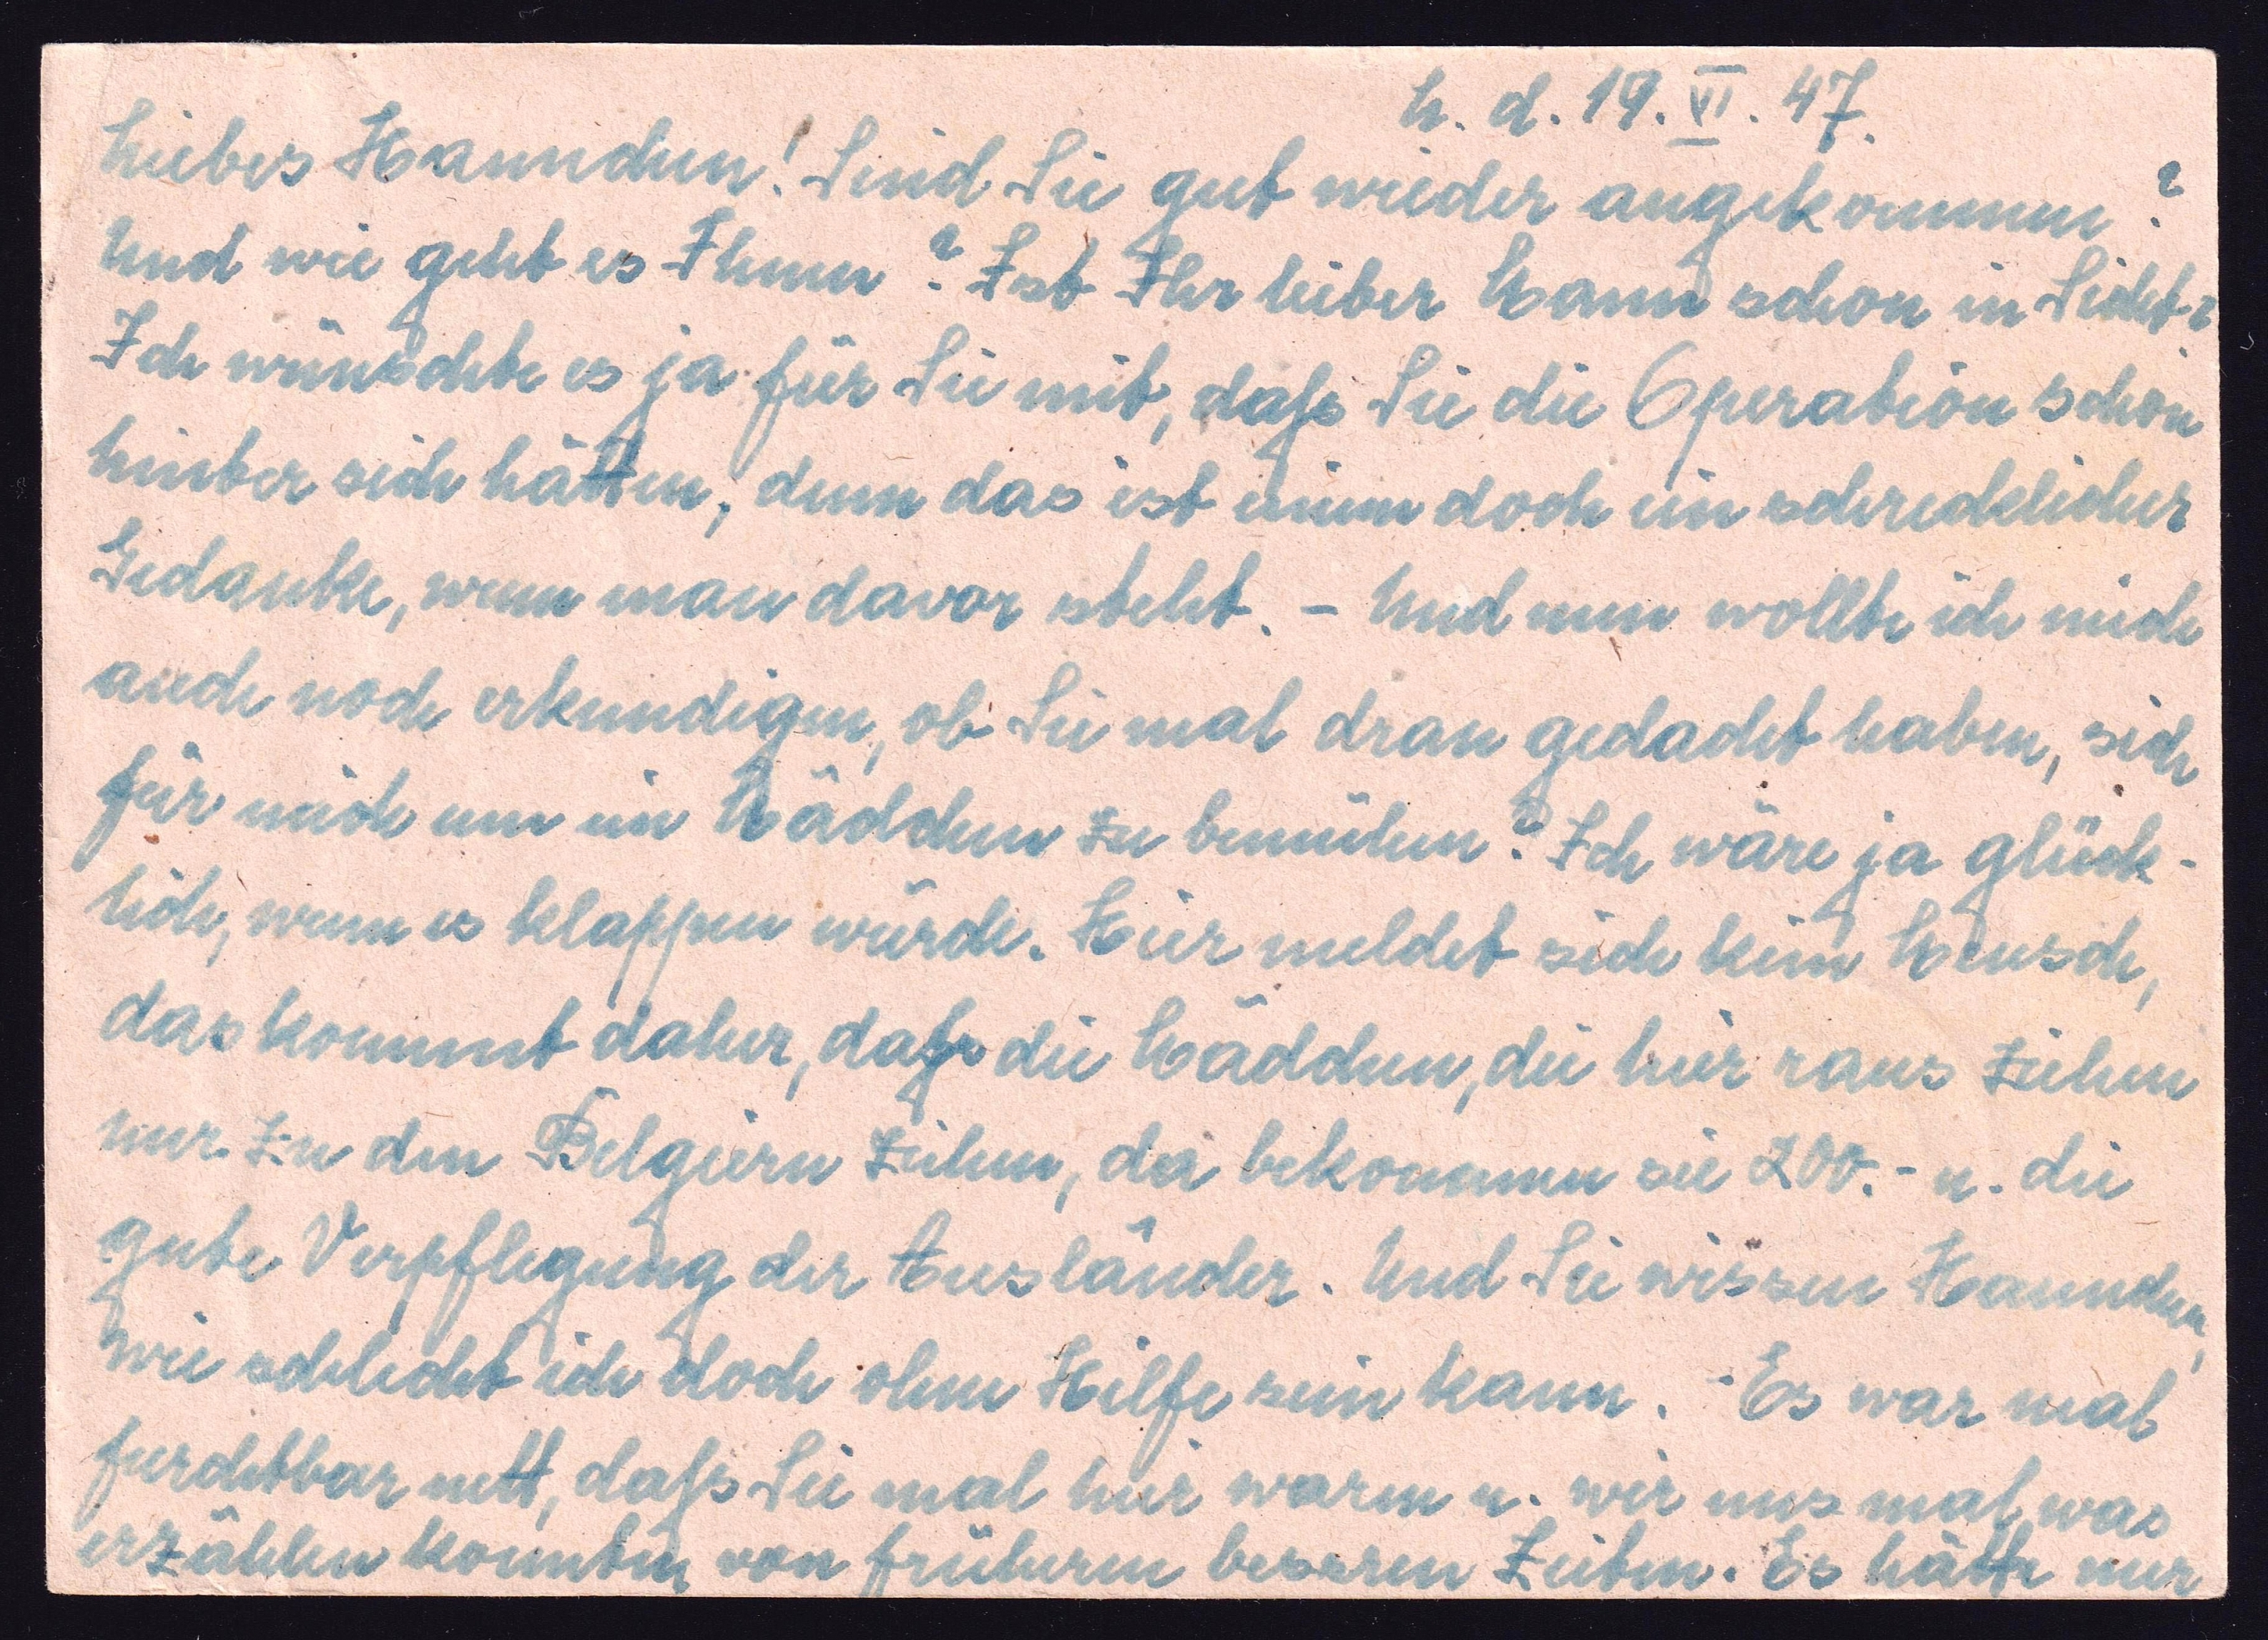 M. d. 19. VI. 47.
Liebes Hannchen! Sind Sie gut wieder angekommen?
Und wie geht es Ihnen? Ist Ihr lieber Mann schon in Sicht?
Ich wünschte es ja für Sie mit, daß Sie die Operation schon
hinter sich hätten, denn das ist einem doch ein schrecklicher
Gedanke, wenn man davor steht. – Und nun wollte ich mich
auch noch erkundigen, ob Sie mal dran gedacht haben, sich
für mich um ein Mädchen zu bemühen? Ich wäre ja glück-
lich, wenn es klappen würde. Hier meldet sich kein Mensch,
das kommt daher, daß die Mädchen, die hier raus ziehen
nur zu den Belgiern ziehen, da bekommen sie 200.- u. die
gute Verpflegung der Ausländer. Und Sie wissen Hannchen,
wie schlecht ich doch ohne Hilfe sein kann. - Es war mal
furchtbar nett, daß Sie mal hier waren u. wir uns mal was
erzählen konnten von früheren besseren Zeiten. Es hätte nur